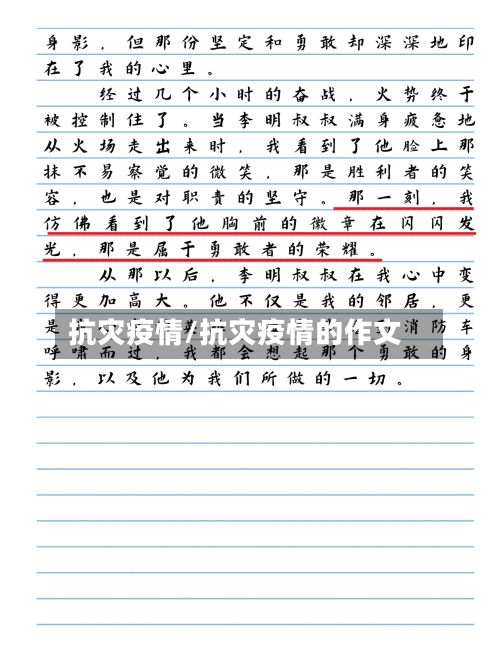 身影，但那份坚定和勇敢却深深地印
在了我的心里。
经过几个小时的奋战，火势终于
被控制住了。当李明叔叔满身疲惫地
从火场走出来时，我看到了他脸上那
抹不易察觉的微笑，那是胜利者的笑
容，也是对职责的坚守。那一刻，我
仿佛看到了他胸前的徽章在闪闪发
光，那是属于勇敢者的荣耀。
从那以后，李明叔叔在我心中变
得更加高大。他不仅是我的邻居，更
是 消防车
抗灾疫情/抗灾疫情的作文
呼啸而过，我都会想起那个勇敢的身
影，以及他为我们所做的一切。